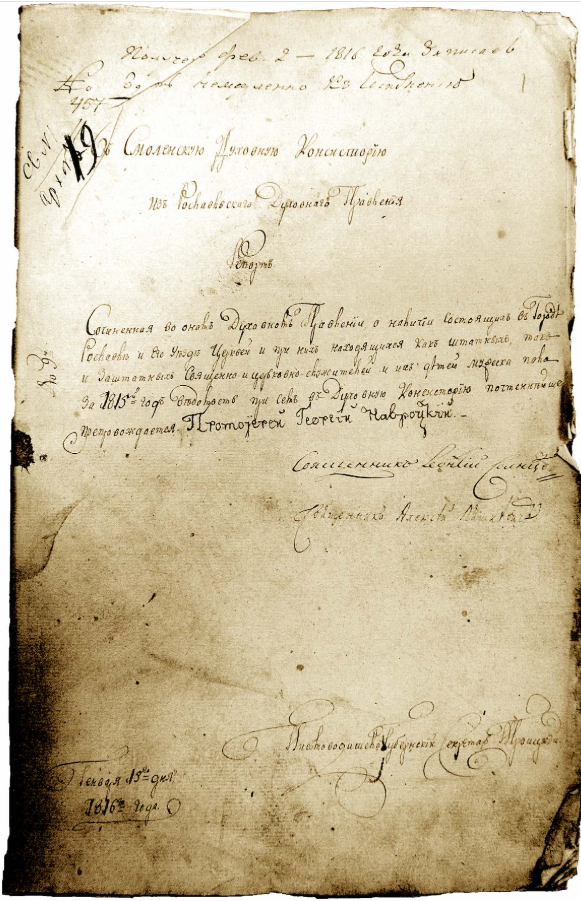 Получ. фев. 2 — 1816 года Записавъ
No 454
немедленно къ
19
Въ Смоленскую Духовную Консисторію
изъ Рославльскаго Духовнаго Правленія
Репортъ
Сочиненная во ономъ Духовномъ Правленіи о наличіи состоящихъ въ Городѣ
Рославлѣ и его Уездѣ Церквей и при нихъ находящихся какъ штатныхъ, такъ
и заштатныхъ Священно и церковно-служителей и ихъ дѣтей мужеска пола
за 1815й годъ Вѣдомость при семъ въ Духовную Консисторію почтеннѣйше
препровождается. Протоіерей Георгій Навроцкій
Священникъ
Священникъ Алексѣй
Писмоводитель Губернскій Секретарь Троицкій
Генваря 15го дня
1816го года.